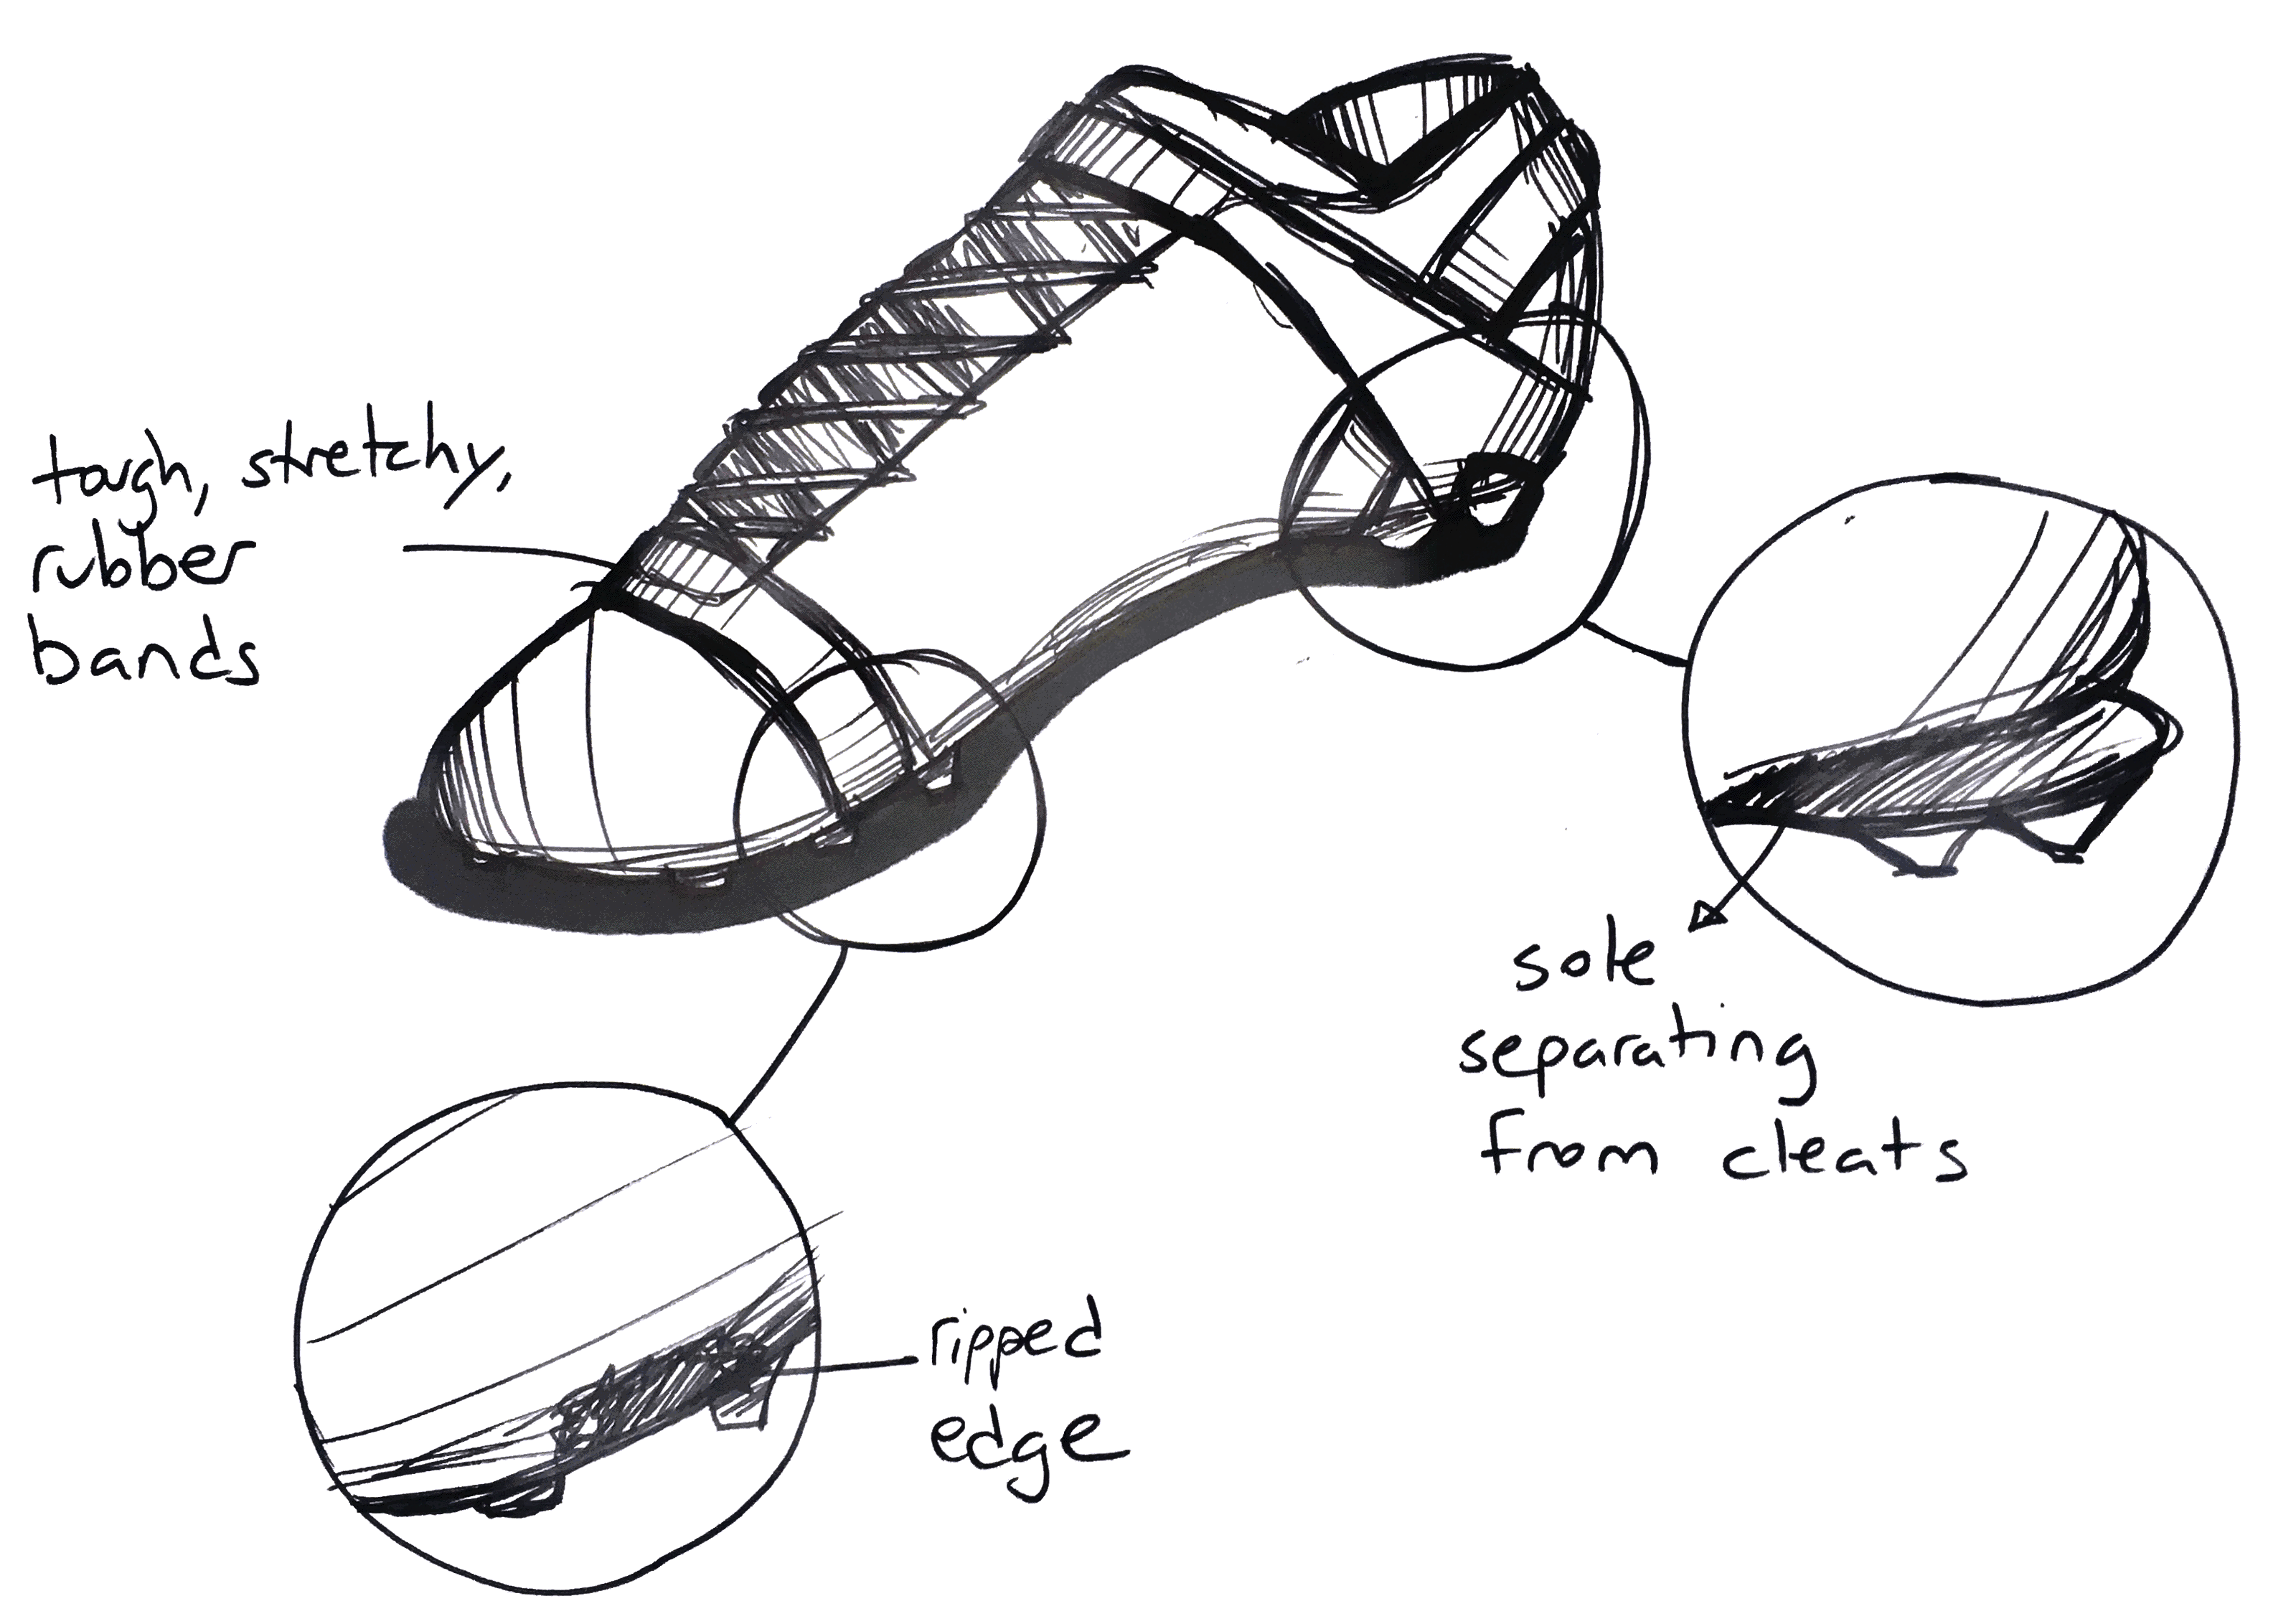 tough, stretchy,
rubber
bands
sole
separating
from cleats
ripped
edge